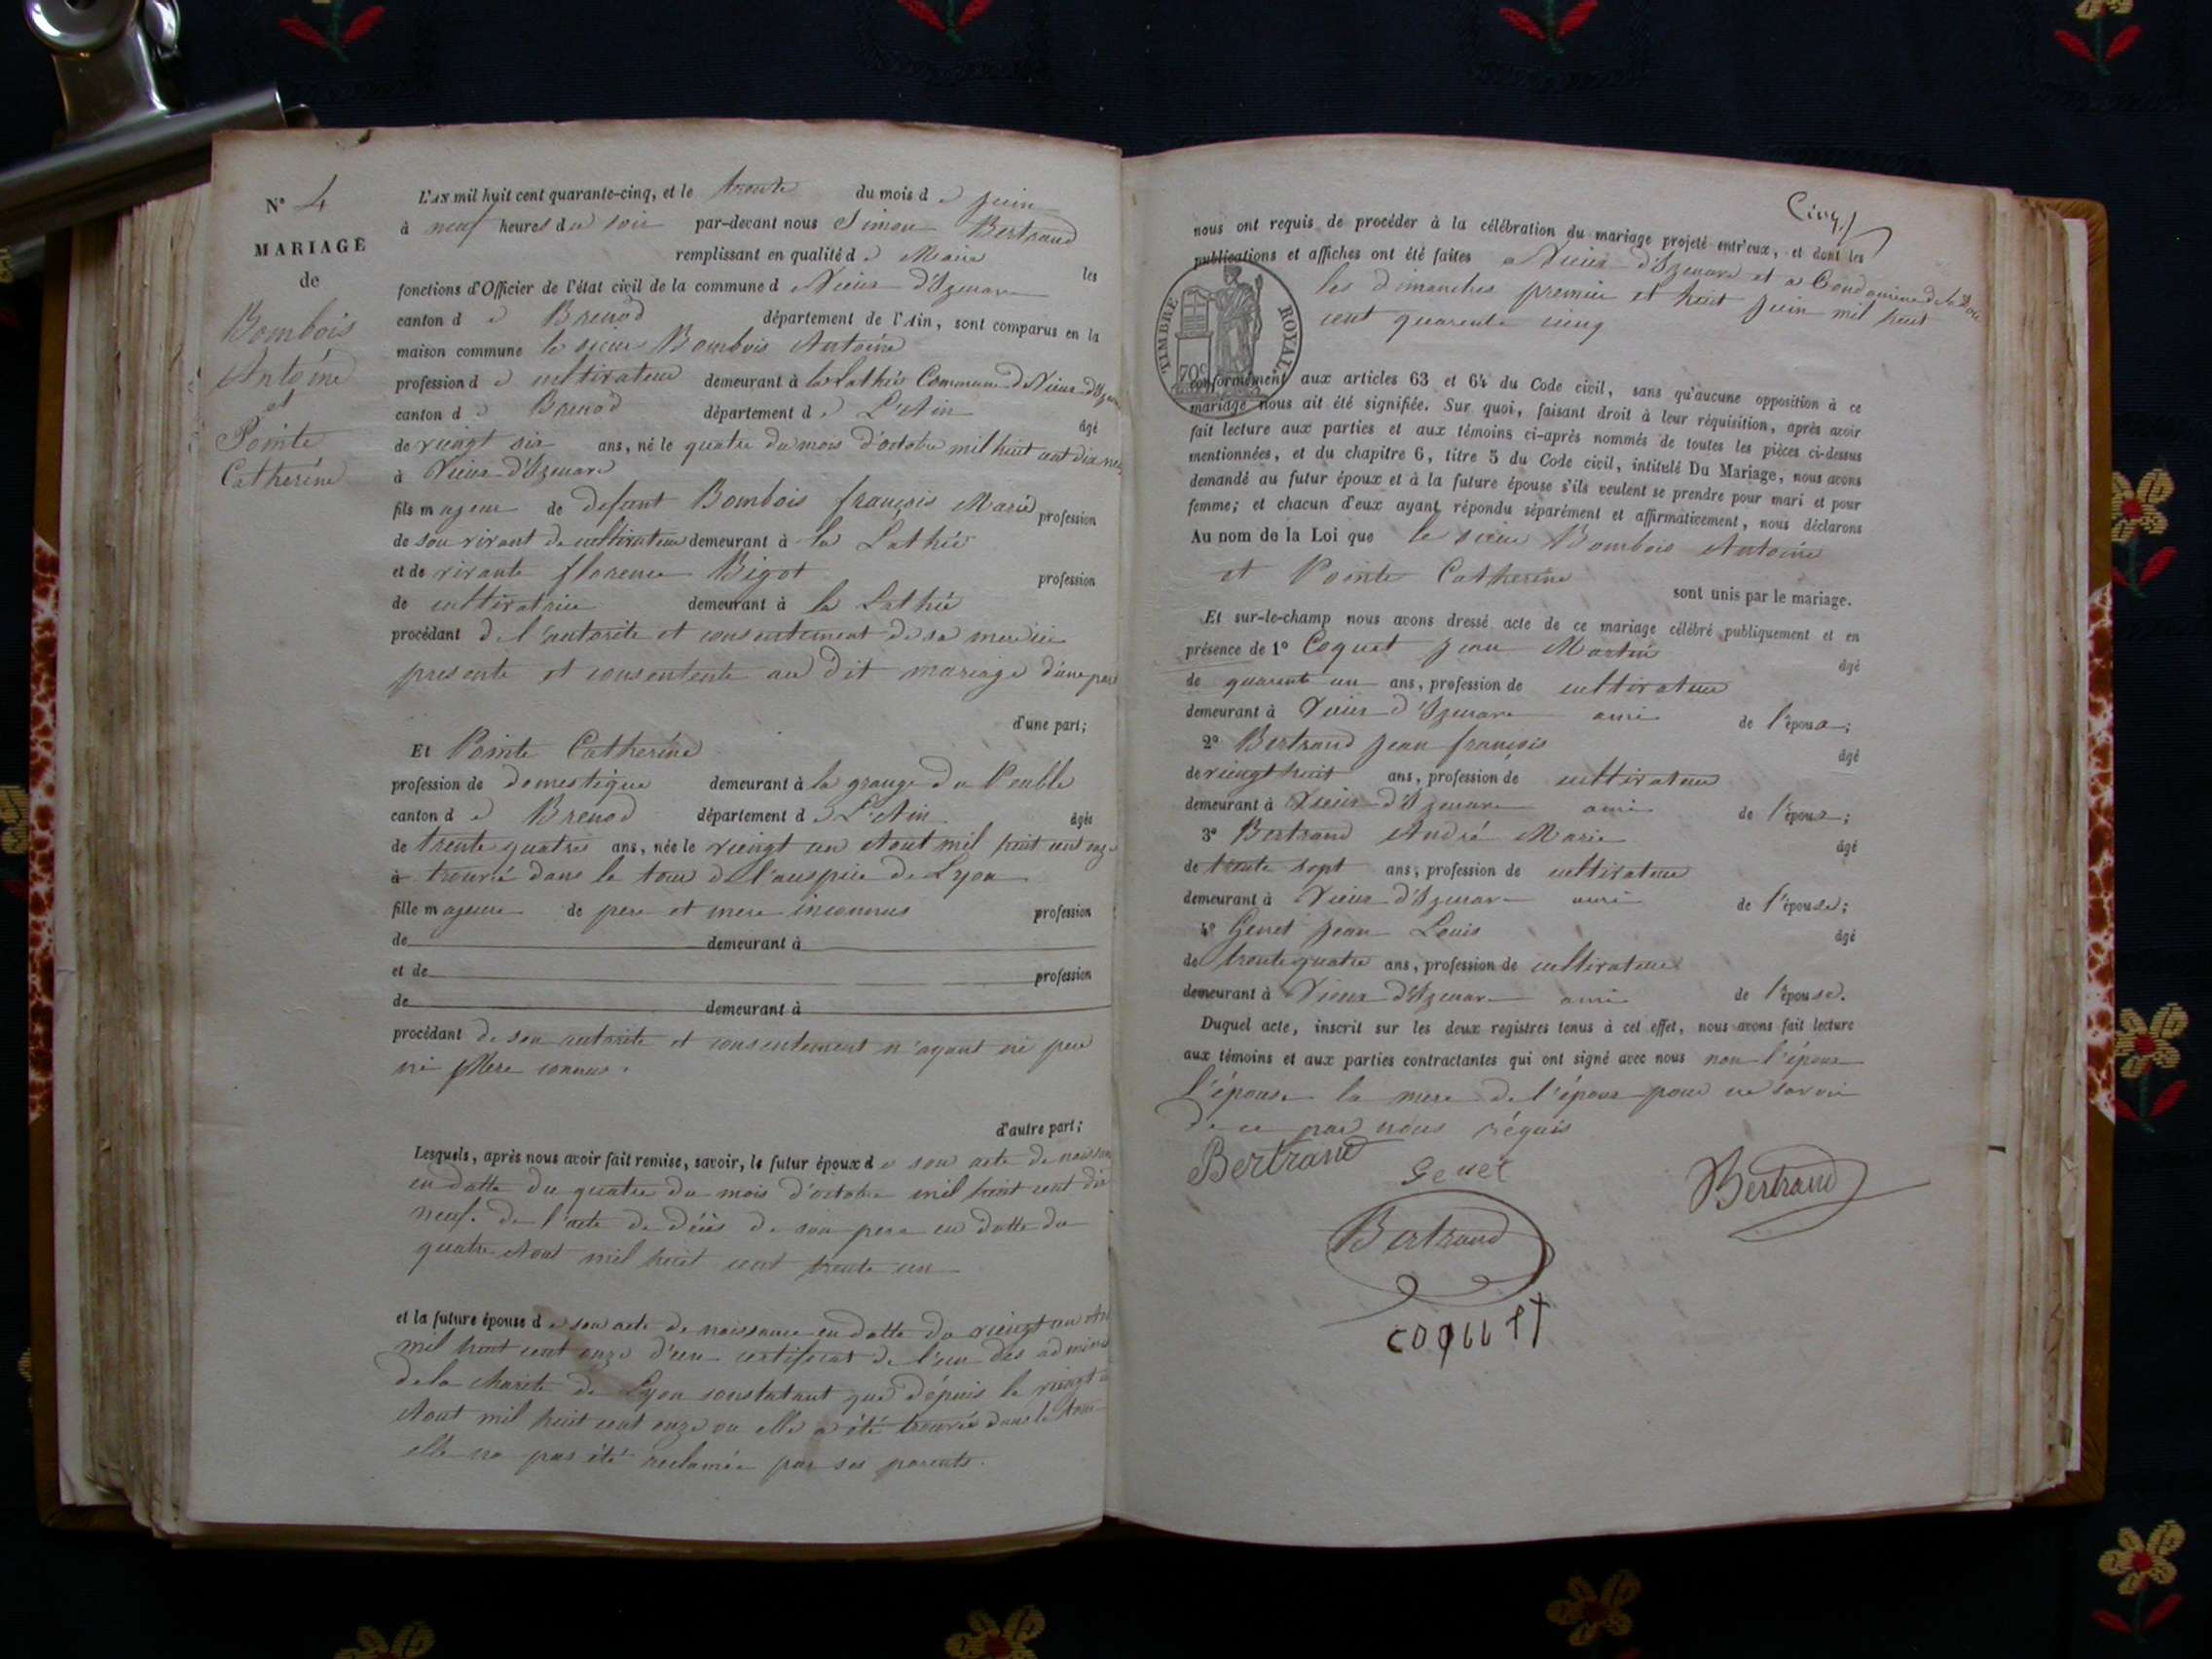 N° 4
MARIAGE
de
Bombois
Antoine
et
Pointe
Catherine
L'AN mil huit cent quarante-cinq, et le trente du mois de juin
à neuf heures du soir par-devant nous Simon Bertrand
remplissant en qualité de Maire les
fonctions d'Officier de l'état civil de la commune de Vieux d'Izenave
canton de Brenod département de l'Ain, sont comparus en la
maison commune le sieur Bombois Antoine
profession de cultivateur demeurant à la Lathié Commune de Vieux d'Izenave
canton de Brenod département de L'Ain âgé
de viengt six ans, né le quatre du mois d'octobre mil huit cent dix neuf
à Vieux d'Izenave
fils majeur de defunt Bombois françois Marie profession
de son vivant de cultivateur demeurant à la Lathié
et de vivante florence Bigot profession
de cultivatrice demeurant à la Lathié
procédant de l'autorite et consentement de sa mere ici
presente et consentente au dit mariage d'une part
d'une part;
Et Pointe Catherine
profession de domestique demeurant à la grange du Peuble
canton de Brenod département de L'Ain âgée
de trente quatre ans, née le viengt un Aout mil huit cent onze
à trouvé dans le tour de l'auspice de Lyon
fille majeure de pere et mere inconnus profession
de demeurant à
et de profession
de demeurant à
procédant de son autorite et consentement n'ayant ni pere
ni Mere connus.
d'autre part;
Lesquels, après nous avoir fait remise, savoir, le futur époux de son acte de naissance
en datte du quatre du mois d'octobre mil huit cent dix
neuf. de l'acte de décès de son pere en datte du
quatre Aout mil huit cent trente un
et la future épouse de son acte de naissance en datte du viengt un
mil huit cent onze d'un certificat de l'un des
de la Charité de Lyon constatant que dépuis le viengt
Aout mil huit cent onze ou elle a été trouvée dans le tour
elle na pas été reclamée par ses parents.
Cinq
nous ont requis de procéder à la célébration du mariage projeté entr'eux, et dont les
publications et affiches ont été faites a Vieux d'Izenave et a Condamine de la Doie
les dimanches premier et huit juin mil huit
cent quarente cinq
TIMBRE ROYAL
70c
conformément aux articles 63 et 64 du Code civil, sans qu'aucune opposition à ce
mariage nous ait été signifiée. Sur quoi, faisant droit à leur réquisition, après avoir
fait lecture aux parties et aux témoins ci-après nommés de toutes les pièces ci-dessus
mentionnées, et du chapitre 6, titre 5 du Code civil, intitulé Du Mariage, nous avons
demandé au futur époux et à la future épouse s'ils veulent se prendre pour mari et pour
femme; et chacun d'eux ayant répondu séparément et affirmativement, nous déclarons
Au nom de la Loi que le sieur Bombois Antoine
et Pointe Catherine
sont unis par le mariage.
Et sur-le-champ nous avons dressé acte de ce mariage célébré publiquement et en
présence de 1° Coquet jean Martin âgé
de quarente un ans, profession de cultivateur
demeurant à Vieux d'Izenave ami de l'époux;
2° Bertrand jean françois âgé
de viengt huit ans, profession de cultivateur
demeurant à Vieux d'Izenave ami de l'époux;
3° Bertrand André Marie âgé
de trente sept ans, profession de cultivateur
demeurant à Vieux d'Izenave ami de l'épouse;
4° Genet jean Louis âgé
de trente quatre ans, profession de cultivateur
demeurant à Vieux d'Izenave ami de l'épouse.
Duquel acte, inscrit sur les deux registres tenus à cet effet, nous avons fait lecture
aux témoins et aux parties contractantes qui ont signé avec nous non l'époux
l'épouse la mere de l'époux pour ne savoir
de ce par nous réquis
Bertrand
Genet
Bertrand
Bertrand
coquet